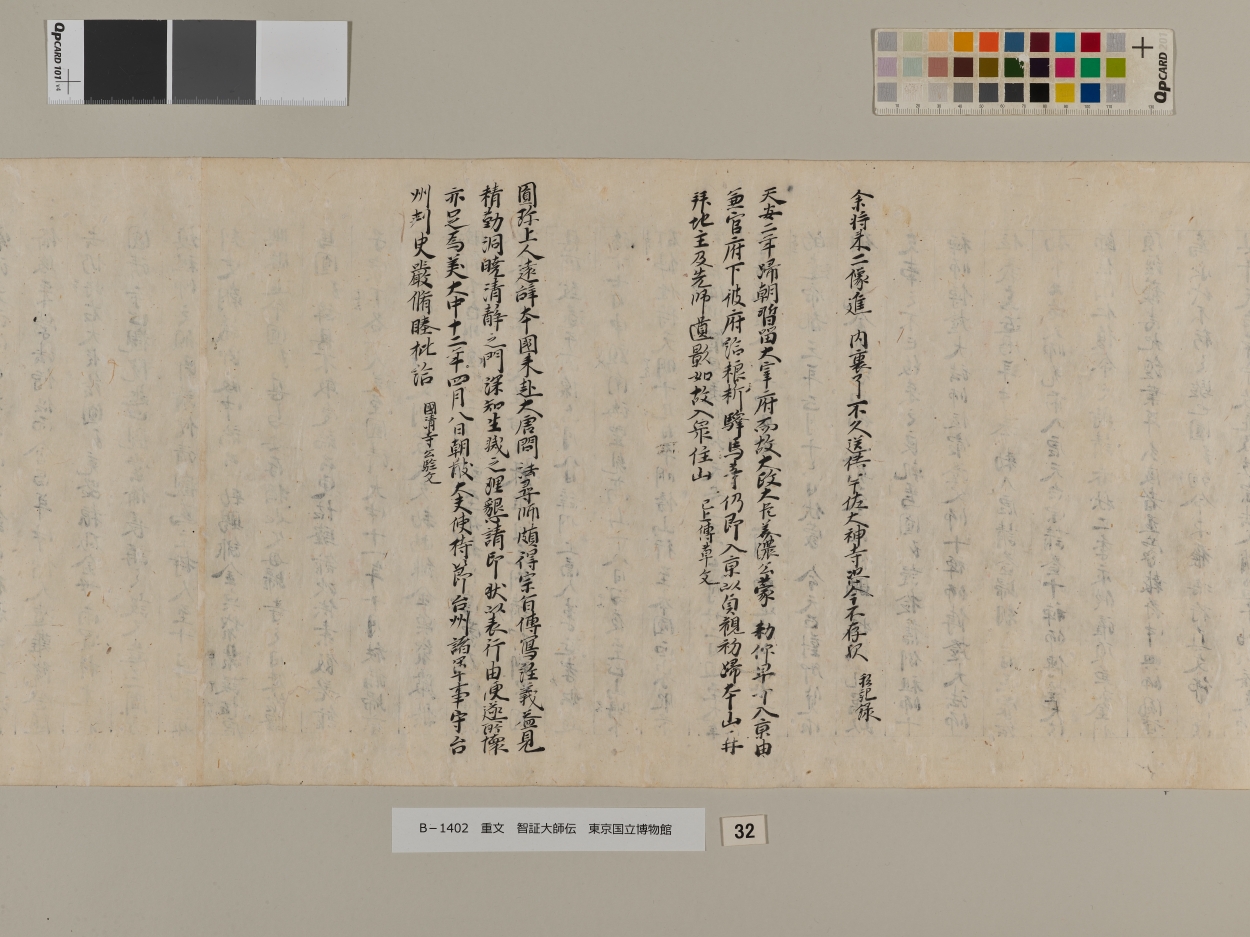 余将来二像進 内裏了不久送供宇佐大神寺恐今不存歟 私記録
天安二年歸朝暫留大宰府而故大政大臣美濃公蒙 勅仰早可入京由
兼官府下彼府給粮新驛馬等仍即入京以貞観初歸本山并
拜地主及先師遺影如故入衆住山 已上傳草文
圓珎上人遠辞本國来赴大唐問法尋師頗得宗旨傳寫經義益見
精勤洞曉清静之門深知生滅之理懇請即状以表行由便遂所懷
亦足為美大中十二年四月八日朝散大夫使持節台州諸軍事守台
州刾史嚴脩睦批給 國清寺公驗文
QPCARD 101 v4
QPCARD 201
B-1402 重文 智証大師伝 東京国立博物館
32